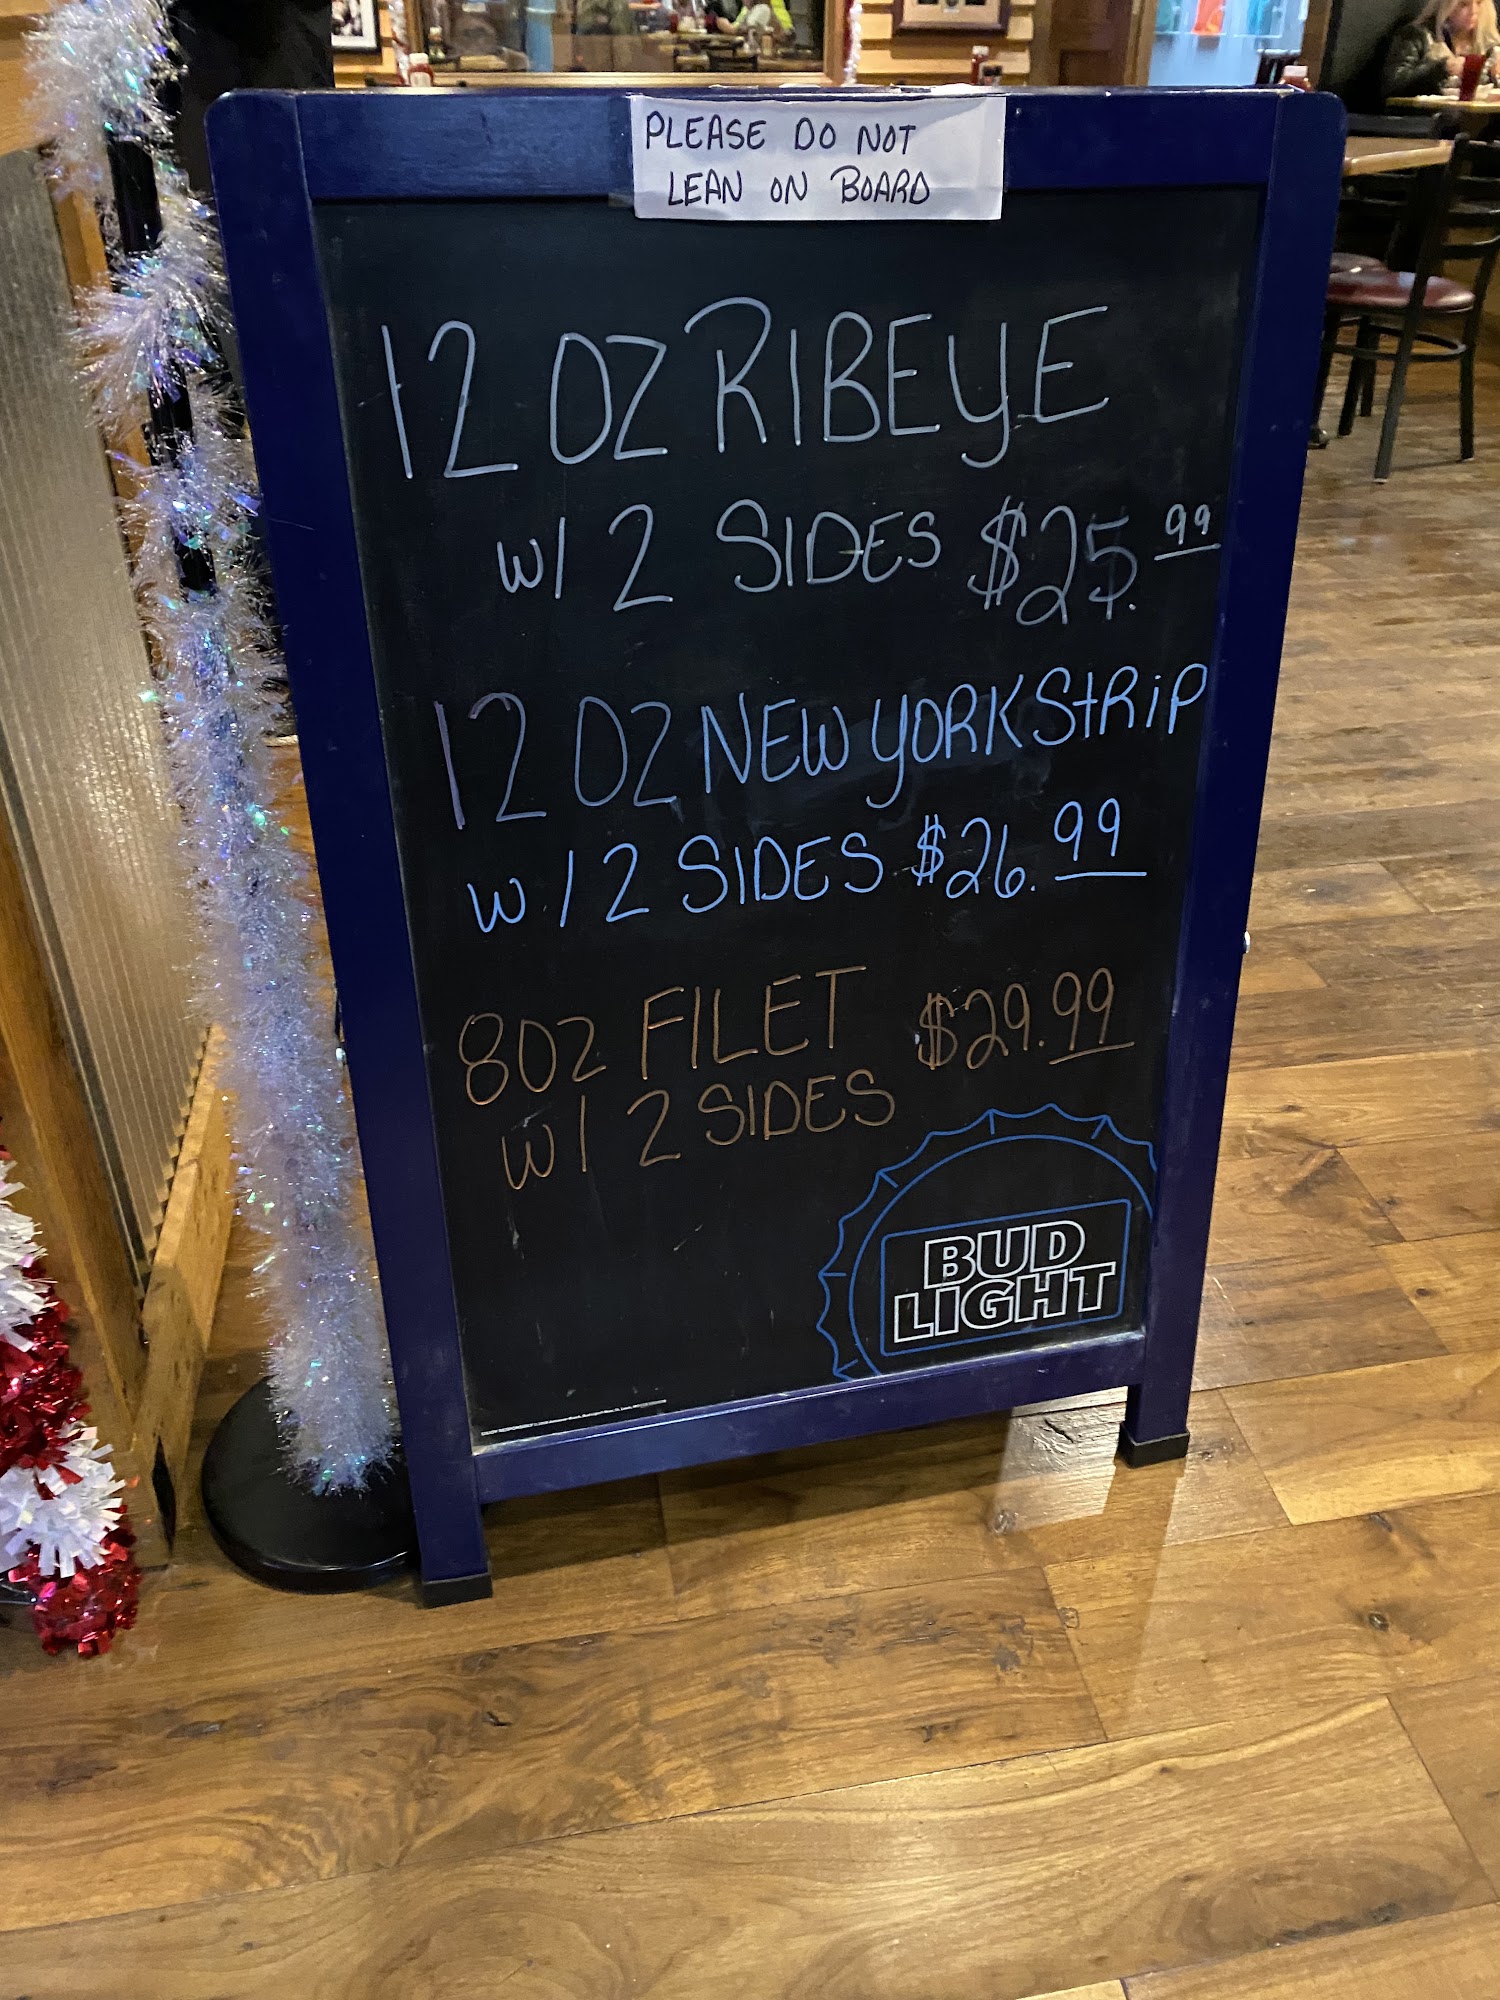 PLEASE DO NOT
LEAN ON BOARD
12 OZ RIBEYE
w/ 2 SIDES $25.99
12 OZ NEW YORK StRiP
w/ 2 SIDES $26.99
8OZ FILET $29.99
w/ 2 SIDES
BUD
LIGHT